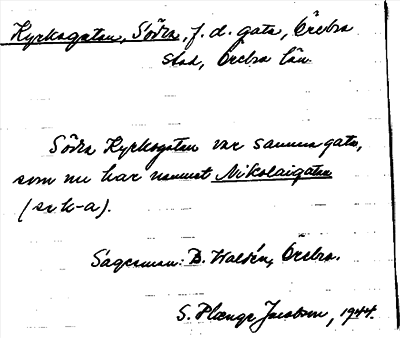 Kyrkogatan, Södra, f. d. gata, Örebro
stad, Örebro län
Södra Kyrkogatan var samma gata,
som nu har namnet Nikolaigatan
(se h-a).
Sagesman: B. Waldén, Örebro.
S. Plænge Jacobson, 1944.